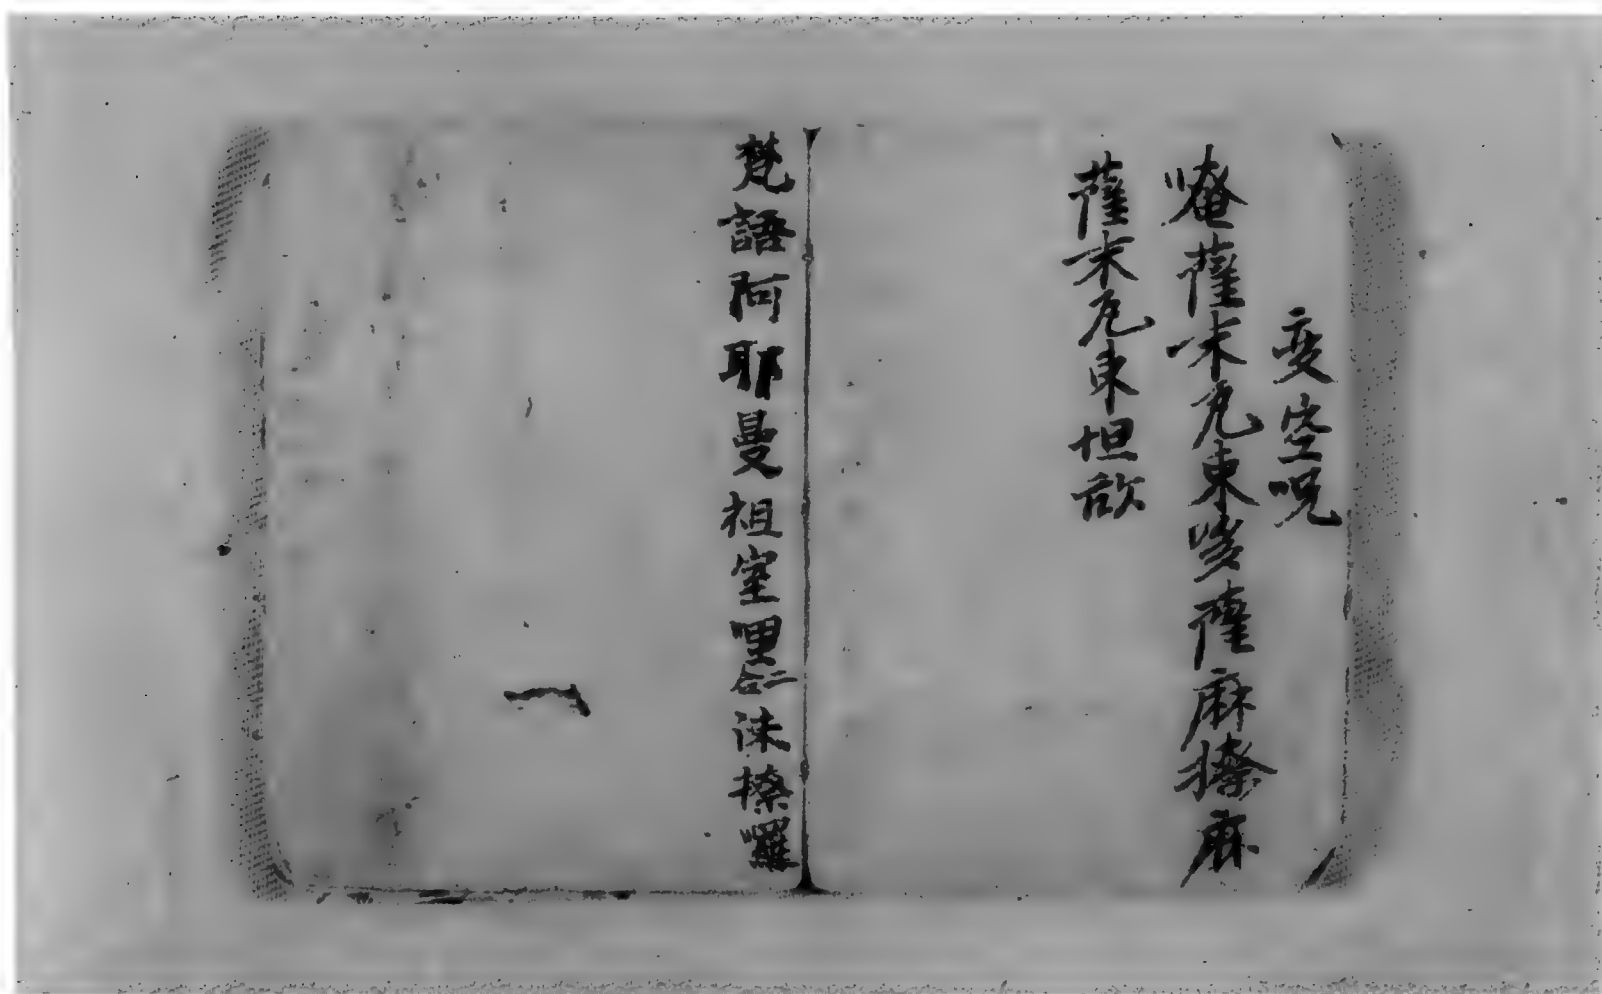 变空呪
唵薩末瓦東哆薩麻捺麻
薩末瓦東坦欱
梵語阿耶曼祖室哩二合沫捺囉